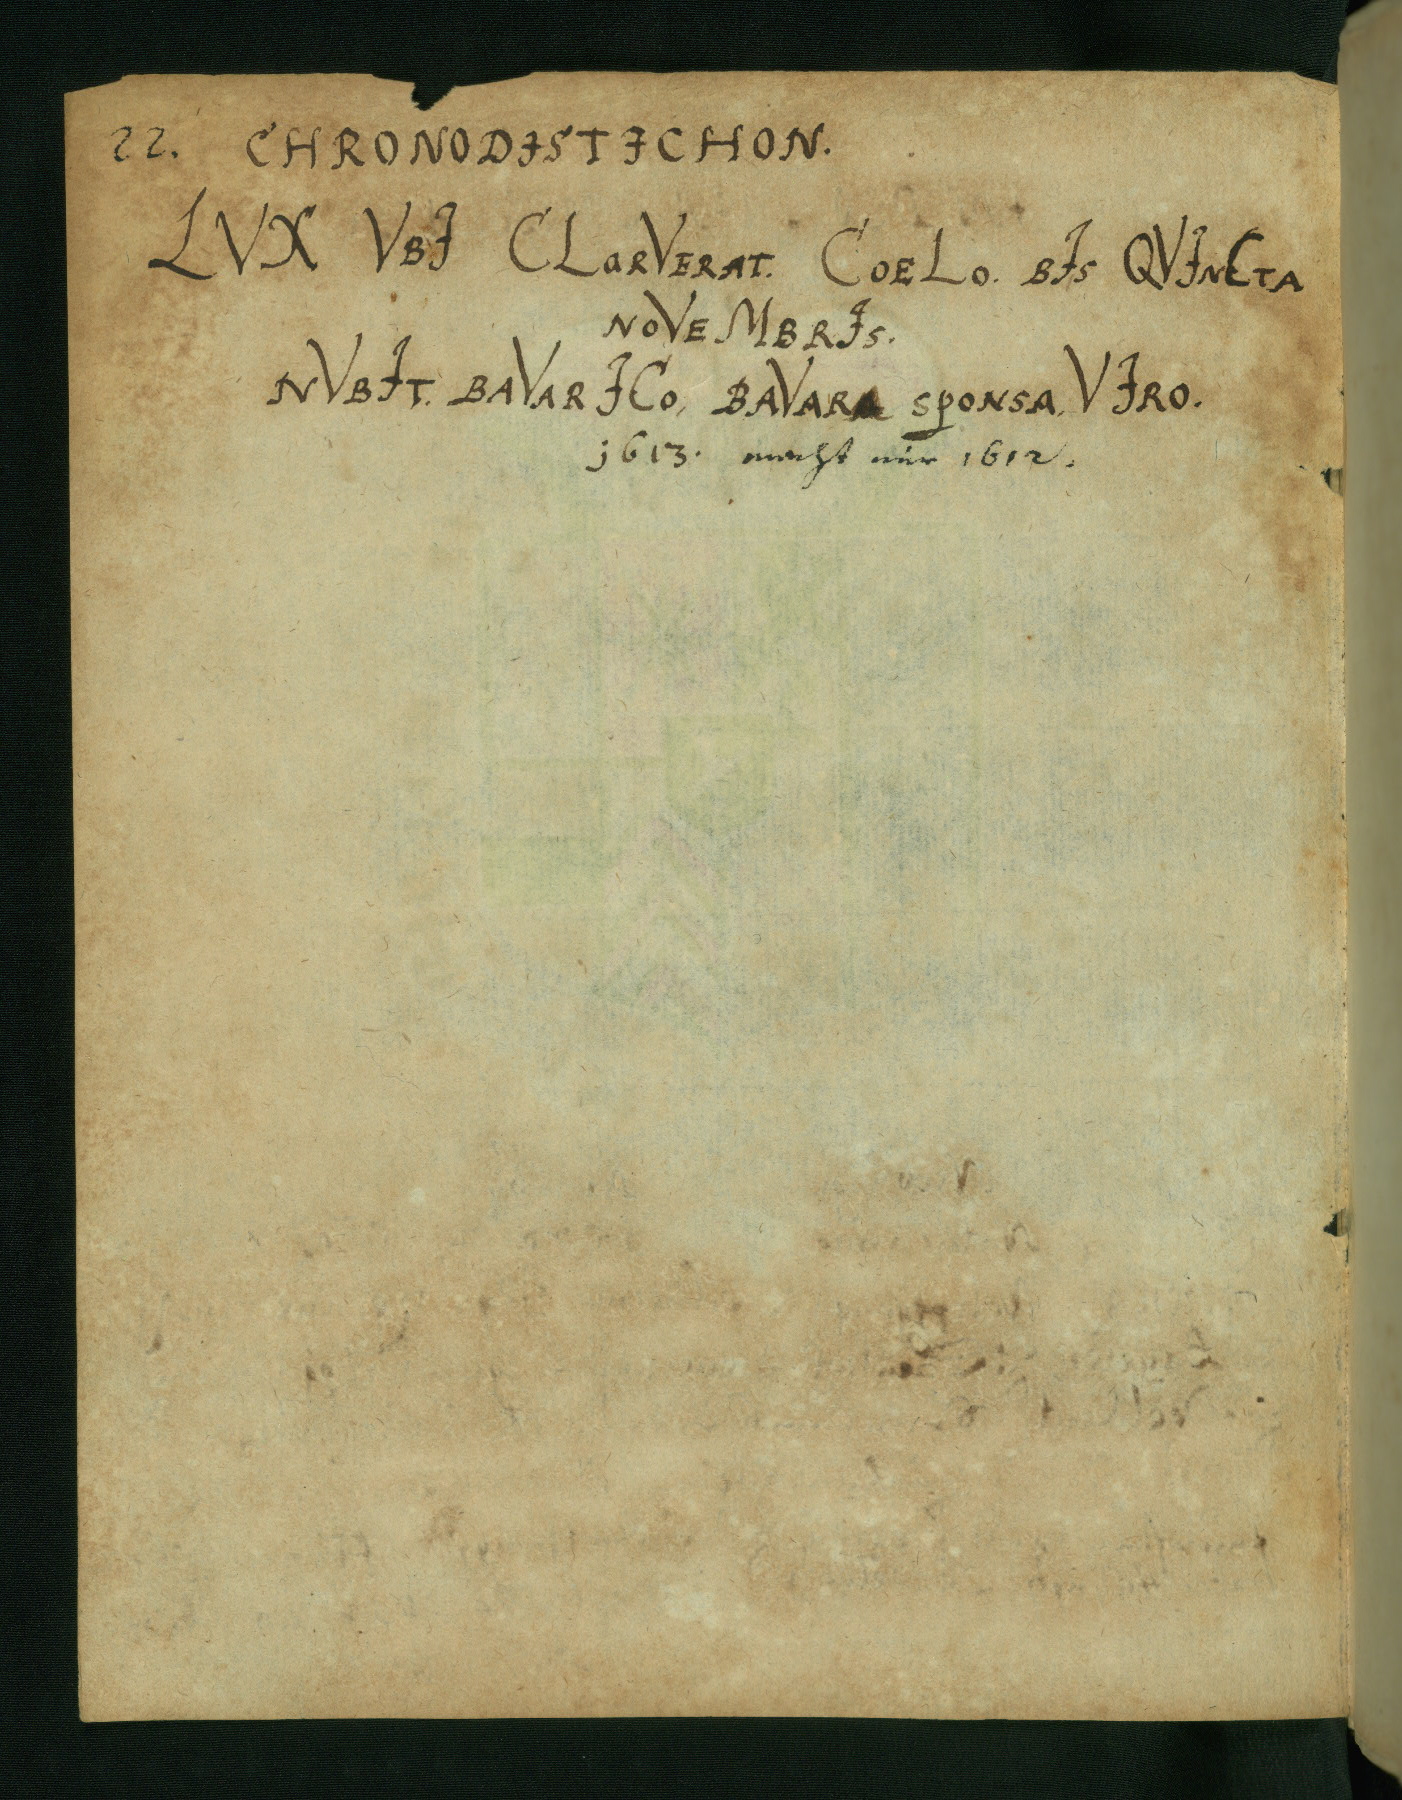 22. CHRONODISTICHON.
LVX VBI CLarVERAT. COELO. BIS QVINCTA
NOVEMBRIS.
NVBIT. BAVARICO, BAVARA SPONSA, VIRO.
1613. macht nur 1612.